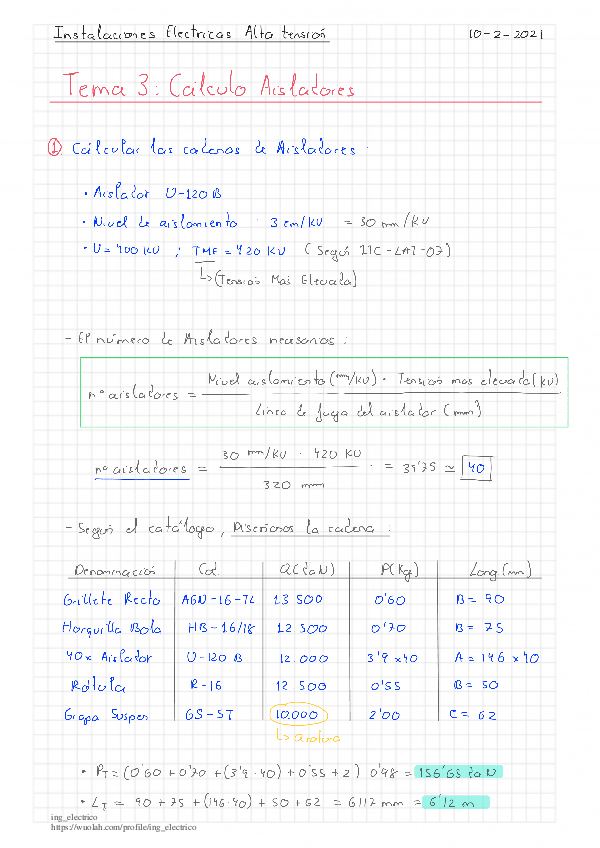 Instalaciones Electricas Alta tensión 10-2-2021
Tema 3: Cálculo Aisladores
① Cálcular las cadenas de Aisladores:
• Aislador U-120 B
• Nivel de aislamiento : 3 cm/KV = 30 mm/KV
• U = 400 KV ; TME = 420 KV (Según ITC-LAT-07)
↳ (Tensión Más Elevada)
- El número de Aisladores necesarios :
nº aisladores = Nivel aislamiento (mm/KV) · Tensión mas elevada (KV)
Línea de fuga del aislador (mm)
nº aisladores = 30 mm/KV · 420 KV = 39'75 ≃ 40
320 mm
- Según el catálogo, Diseñamos la cadena :
Denominación Cat. Q(daN) P(Kg) Long (mm)
Grillete Recto AGN-16-TL 13 500 0'60 B = 90
Horquilla Bola HB-16/18 12 500 0'70 B = 75
40x Aislador U-120 B 12.000 3'9 x40 A = 146 x 40
Rótula R-16 12 500 0'55 B = 50
Grapa Suspen GS-5T 10.000 2'00 C = 62
↳
• PT = (0'60 + 0'70 + (3'9 · 40) + 0'55 + 2) 0'98 = 156'65 daN
• LT = 90 + 75 + (146·40) + 50 + 62 = 6117 mm = 6'12 m
ing_electrico
https://wuolah.com/profile/ing_electrico